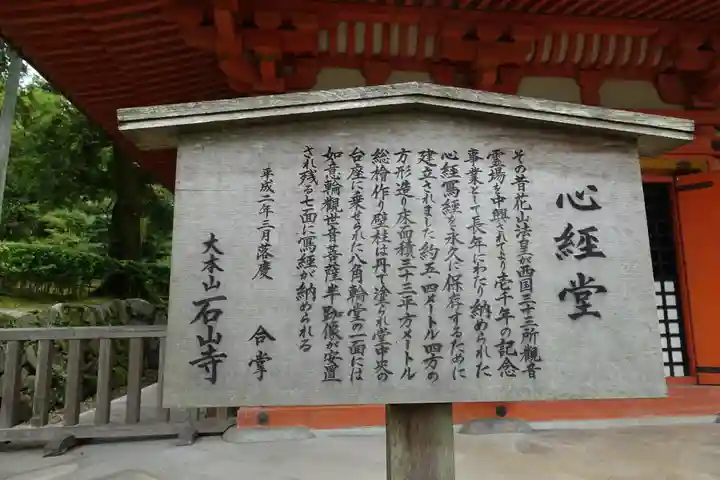 心経堂
その昔花山法皇が西国三十三所觀音
霊場を中興されてより壱千年の記念
事業として長年にわたり納められた
心經寫經を永久に保存するために
建立されました約五・四メートル四方の
方形造り床面積三十三平方メートル
総檜作り壁柱は丹で塗られ堂中央の
台座に乗せられた八角輪堂の一面には
如意輪觀世音菩薩半跏像が安置
され残る七面に寫經が納められる
平成二年三月落慶
合掌
大本山石山寺